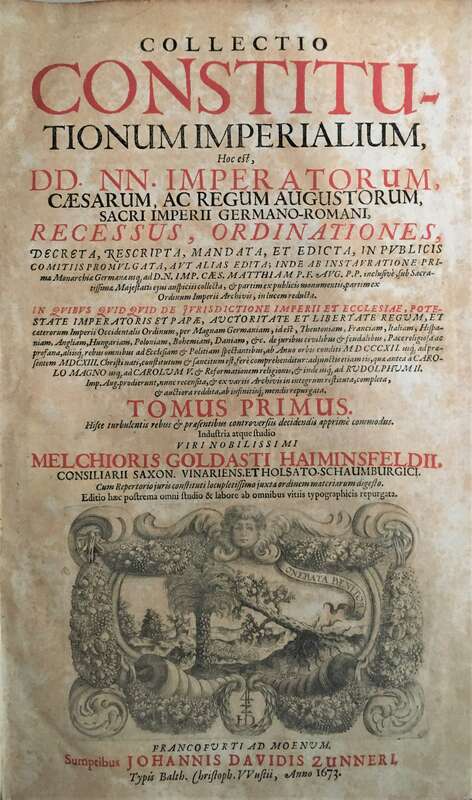 COLLECTIO
CONSTITU-
TIONUM IMPERIALIUM,
Hoc est,
DD. NN. IMPERATORUM,
CÆSARUM, AC REGUM AUGUSTORUM,
SACRI IMPERII GERMANO-ROMANI,
RECESSUS, ORDINATIONES,
DECRETA, RESCRIPTA, MANDATA, ET EDICTA, IN PVBLICIS
COMITIIS PROMVLGATA, AVT ALIAS EDITA; INDE AB INSTAVRATIONE PRI-
ma Monarchiæ Germanæ usq; ad D.N. IMP. CÆS. MATTHIAM P.F. AVG. P.P. inclusivè, sub Sacra-
tissimæ Majestatis ejus auspiciis collecta, & partim ex publicis monumentis, partim ex
Ordinum Imperii Archivis, in lucem reducta.
IN QVIBVS QVIDQVID DE JVRISDICTIONE IMPERII ET ECCLESIAE, POTE-
STATE IMPERATORIS ET PAPÆ, AVCTORITATE ET LIBERTATE REGUM, ET
cæterorum Imperii Occidentalis Ordinum, per Magnam Germaniam, id est, Theutoniam, Franciam, Italiam, Hispa-
niam, Angliam, Hungariam, Poloniam, Bohemiam, Daniam, &c. de juribus civilibus & feudalibus, Pace religiosa ac
profana, aliisq; rebus omnibus ad Ecclesiam & Politiam spectantibus, ab Anno orbis conditi MDCCCXII. usq; ad præ-
sentem MDCXIII. Christi nati, constitutum & sancitum est, ferè comprehenditur: adjunctis etiam iis, quæ antea à CARO-
LO MAGNO usq; ad CAROLUM V. & Reformationem religionis, & inde usq; ad RUDOLPHUM II.
Imp. Aug. prodierunt, nunc recensita, & ex variis Archivis in integrum restituta, completa,
& auctiora reddita, ab infinitisq; mendis repurgata.
TOMUS PRIMUS.
Hisce turbulentis rebus & præsentibus controversiis decidendis apprimè commodus.
Industria atque studio
VIRI NOBILISSIMI
MELCHIORIS GOLDASTI HAIMINSFELDII.
CONSILIARII SAXON. VINARIENS. ET HOLSATO-SCHAUMBURGICI.
Cum Repertorio juris constituti locupletissimo juxta ordinem materiarum digesto.
Editio hæc postrema omni studio & labore ab omnibus vitiis typographicis repurgata.
ONERATA
FRANCOFURTI AD MOENUM,
Sumptibus JOHANNIS DAVIDIS ZUNNERI,
Typis Balth. Christoph. VVustii, Anno 1673.